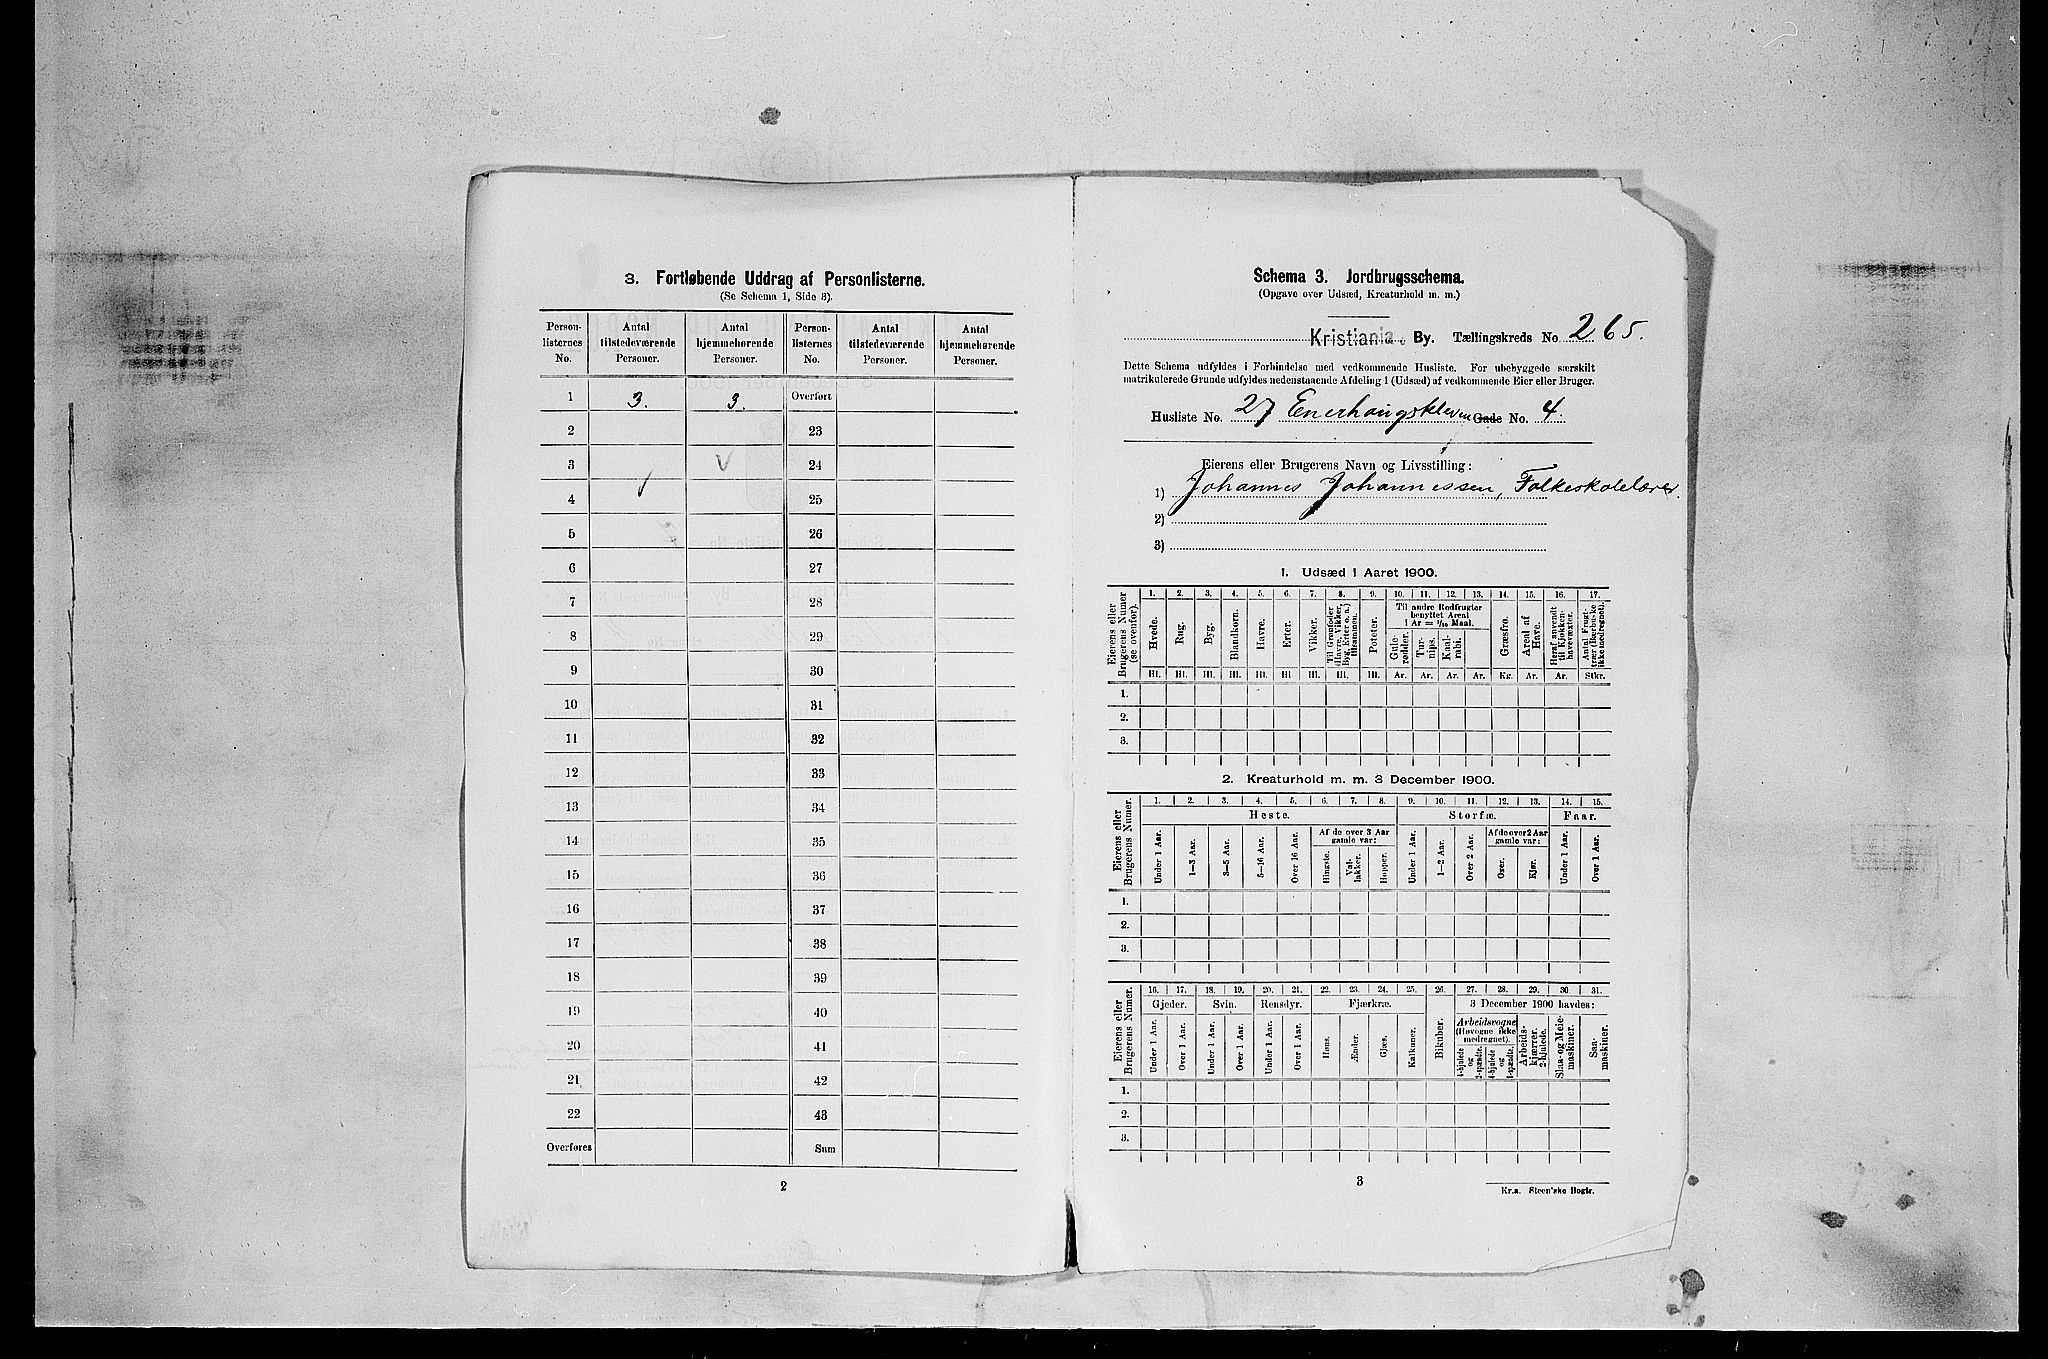 3. Fortløbende Uddrag af Personlisterne.
(Se Schema 1, Side 3).
Person-listernes No. Antal tilstedeværende Personer. Antal hjemmehørende Personer. Person-listernes No. Antal tilstedeværende Personer. Antal hjemmehørende Personer.
1 3. 3. Overført
2 23
3 24
4 25
5 26
6 27
7 28
8 29
9 30
10 31
11 32
12 33
13 34
14 35
15 36
16 37
17 38
18 39
19 40
20 41
21 42
22 43
Overføres Sum
2
Schema 3. Jordbrugsschema.
(Opgave over Udsæd, Kreaturhold m. m.)
Kristiania By. Tællingskreds No 265.
Dette Schema udfyldes i Forbindelse med vedkommende Husliste. For ubebyggede særskilt
matrikulerede Grunde udfyldes nedenstaaende Afdeling 1 (Udsæd) af vedkommende Eier eller Bruger.
Husliste No. 27 Enerhaugskleven Gade No. 4.
Eierens eller Brugerens Navn og Livsstilling:
1) Johannes Johannessen, Folkeskolelærer.
2)
3)
1. Udsæd i Aaret 1900.
Eierens eller Brugerens Numer (se ovenfor).
1. 2. 3. 4. 5. 6. 7. 8. 9. 10. 11. 12. 13. 14. 15. 16. 17.
Til andre Rodfrugter benyttet Areal 1 Ar = 1/10 Maal.
Hvede. Rug. Byg. Blandkorn. Havre. Erter. Vikker. Til Grønfoder (Havre, Vikker, Byg, Erter o. a.) tilsammen. Poteter. Gulerødder. Turnips. Kaalrabi. Græsfrø. Areal af Have. Heraf anvendt til Kjøkkenhavevæxter. Antal Frugttrær (Bærbuske ikke medregnet).
Hl. Hl. Hl. Hl. Hl. Hl. Hl. Hl. Hl. Ar. Ar. Ar. Ar. Kg. Ar. Ar. Stkr.
1.
2.
3.
2. Kreaturhold m. m. 3 December 1900.
Eierens eller Brugerens Numer.
1. 2. 3. 4. 5. 6. 7. 8. 9. 10. 11. 12. 13. 14. 15.
Heste. Storfæ. Faar.
Af de over 3 Aar gamle var: Af de over 2 Aar gamle var:
Under 1 Aar. 1—3 Aar. 3—5 Aar. 5—16 Aar. Over 16 Aar. Hingste. Vallakker. Hopper. Under 1 Aar. 1—2 Aar. Over 2 Aar. Oxer. Kjør. Under 1 Aar. Over 1 Aar.
1.
2.
3.
Eierens eller Brugerens Numer.
16. 17. 18. 19. 20. 21. 22. 23. 24. 25. 26. 27. 28. 29. 30. 31.
Gjeder. Svin. Rensdyr. Fjærkræ. 3 December 1900 havdes:
Arbeidsvogne (Høvogne ikke medregnet).
Under 1 Aar. Over 1 Aar. Under 1 Aar. Over 1 Aar. Under 1 Aar. Over 1 Aar. Høns. Ænder. Gjæs. Kalkuner. Bikuber. 4-hjulede og 2-spændte. 4-hjulede og 1-spændte. Arbeidskjærrer, 2-hjulede. Slaa- og Meiemaskiner. Saamaskiner.
1.
2.
3.
3
Kr.a. Steen'ske Bogtr.